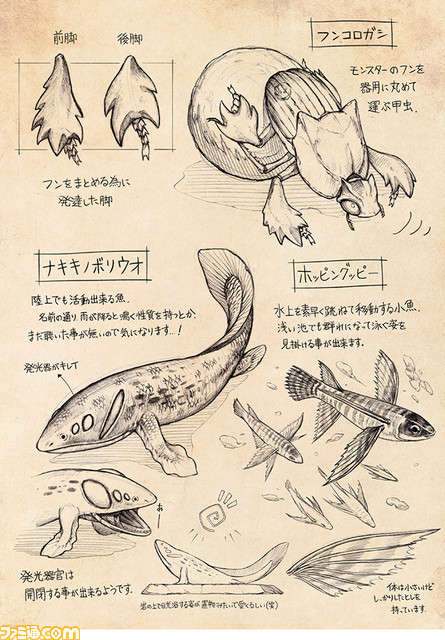 前脚
後脚
フンをまとめる為に
発達した脚
フンコロガシ
モンスターのフンを
器用に丸めて
運ぶ甲虫。
ナキキノボリウオ
陸上でも活動出来る魚。
名前の通り雨が降ると鳴く性質を持つとか、
まだ聴いた事が無いので気になります…!
発光器がキレイ
あー
発光器官は
開閉する事が出来るようです。
岩の上で日光浴する姿が置物みたいで愛くるしい(笑)
ホッピングッピー
水上を素早く跳ねて移動する小魚。
浅い池でも群れになって泳ぐ姿を
見掛ける事が出来ます。
体は小さいけど
しっかりしたヒレを
持っています。
ファミ通.com